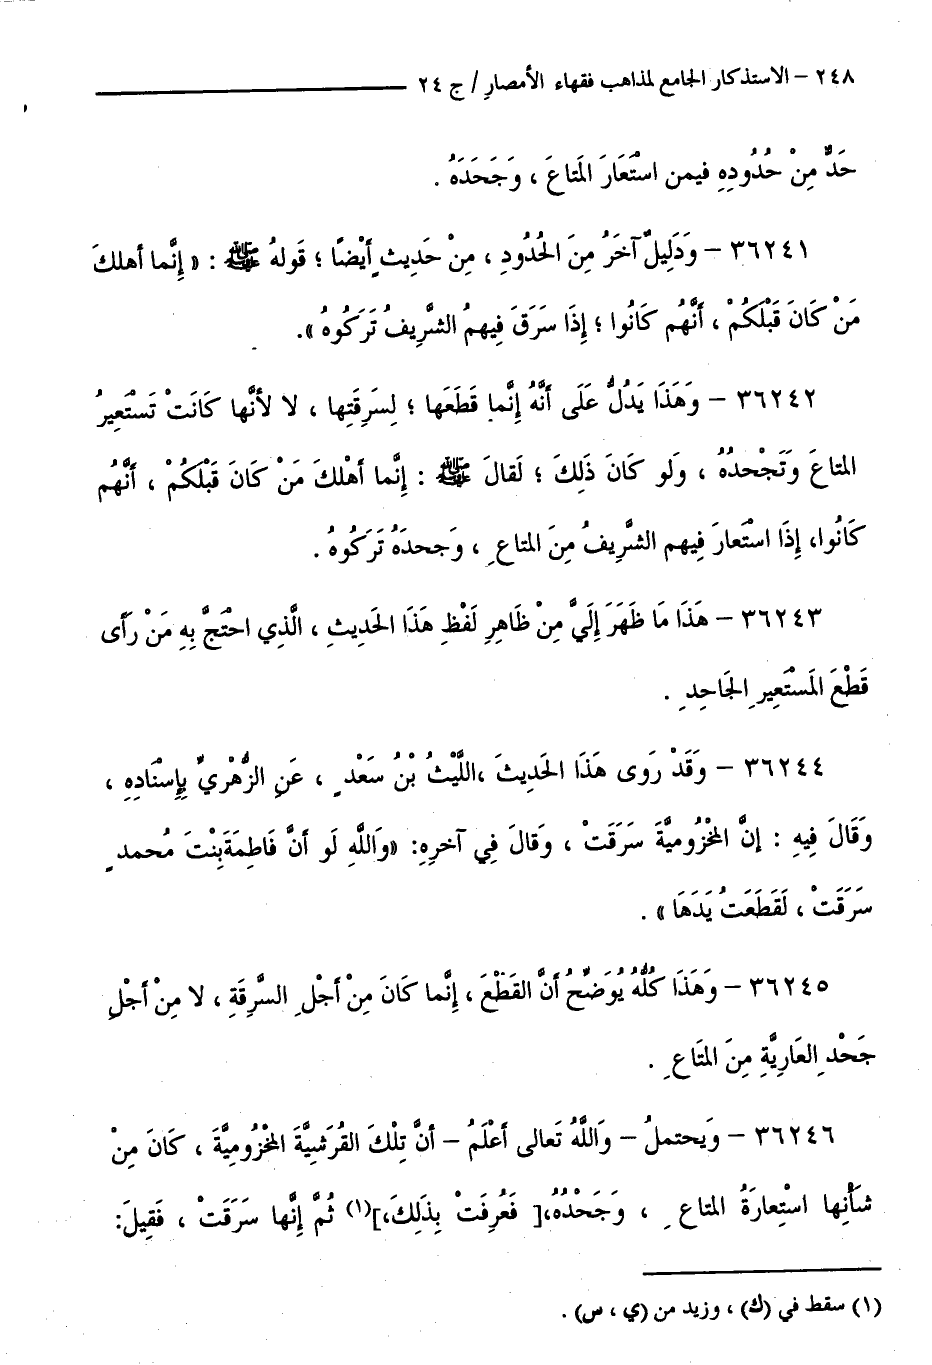 ٢٤٨ – الاستذكار الجامع لمذاهب فقهاء الأمصارِ / ج ٢٤
حَدٌّ مِنْ حُدُودِهِ فيمن استْعَارَ المَتاعَ ، وَجَحَدَهُ .
٣٦٢٤١ – وَدَلِيلٌ آخَرُ مِنَ الحُدُودِ ، مِنْ حَدِيثٍ أَيْضًا ؛ قَولهُ ﷺ : « إِنَّما أهلكَ
مَنْ كَانَ قَبْلَكُمْ ، أَنَّهُم كَانُوا ؛ إِذَا سَرَقَ فِيهمُ الشَّرِيفُ تَرَكُوهُ ».
٣٦٢٤٢ – وَهَذَا يَدُلُّ عَلَى أَنَّهُ إِنَّما قَطَعَها ؛ لِسَرِقَتِها ، لا لأنَّها كَانَتْ تَسْتَعِيرُ
المتاعَ وَتَجْحدُهُ ، وَلو كَانَ ذَلِكَ ؛ لَقالَ ﷺ : إِنَّما أهْلكَ مَنْ كَانَ قَبْلَكُمْ ، أَنَّهُم
كَانُوا، إِذَا استْعارَ فِيهم الشَّرِيفُ مِنَ المتاعِ ، وَجحدَهُ تَرَكُوهُ .
٣٦٢٤٣ – هَذَا مَا ظَهَرَ إِلَيَّ مِنْ ظَاهِرِ لَفْظِ هَذَا الحَدِيثِ ، الَّذِي احتْجَّ بِهِ مَنْ رَأَى
قَطْعَ المَسْتَعِيرِ الجَاحِدِ .
٣٦٢٤٤ – وَقَدْ رَوى هَذَا الحَدِيثَ ،اللَّيْثُ بْنُ سَعْدٍ ، عَنِ الزُّهْرِيِّ بِإِسْنَادِهِ ،
وَقَالَ فِيهِ : إِنَّ المخْزُوميَّةَ سَرَقَتْ ، وَقالَ فِي آخرِهِ: «وَاللَّهِ لَو أنَّ فَاطِمَةَبِنْتَ مُحمدٍ
سَرَقَتْ ، لَقَطَعَتُ يَدَهَا » .
٣٦٢٤٥ – وَهَذَا كُلُّهُ يُوَضِّحُ أَنَّ القَطْعَ ، إِنَّما كَانَ مِنْ أجْلِ السَّرِقَةِ ، لا مِنْ أجْلِ
جَحْدِ العَارِيَّةِ مِنَ المتَاعِ .
٣٦٢٤٦ – وَيحتملُ – وَاللَّهُ تَعالى أعْلَمُ – أنَّ تِلْكَ القُرَشيَّةَ المخْزُوميَّةَ ، كَانَ مِنْ
شَأْنِها استْعِارَةُ المتاعِ ، وَجَحْدُهُ،[ فَعُرِفَتْ بِذَلِكَ،](١) ثُمَّ إِنَّها سَرَقَتْ ، فَقِيلَ:
(١) سقط في (ك) ، وزيد من (ي ، س) .